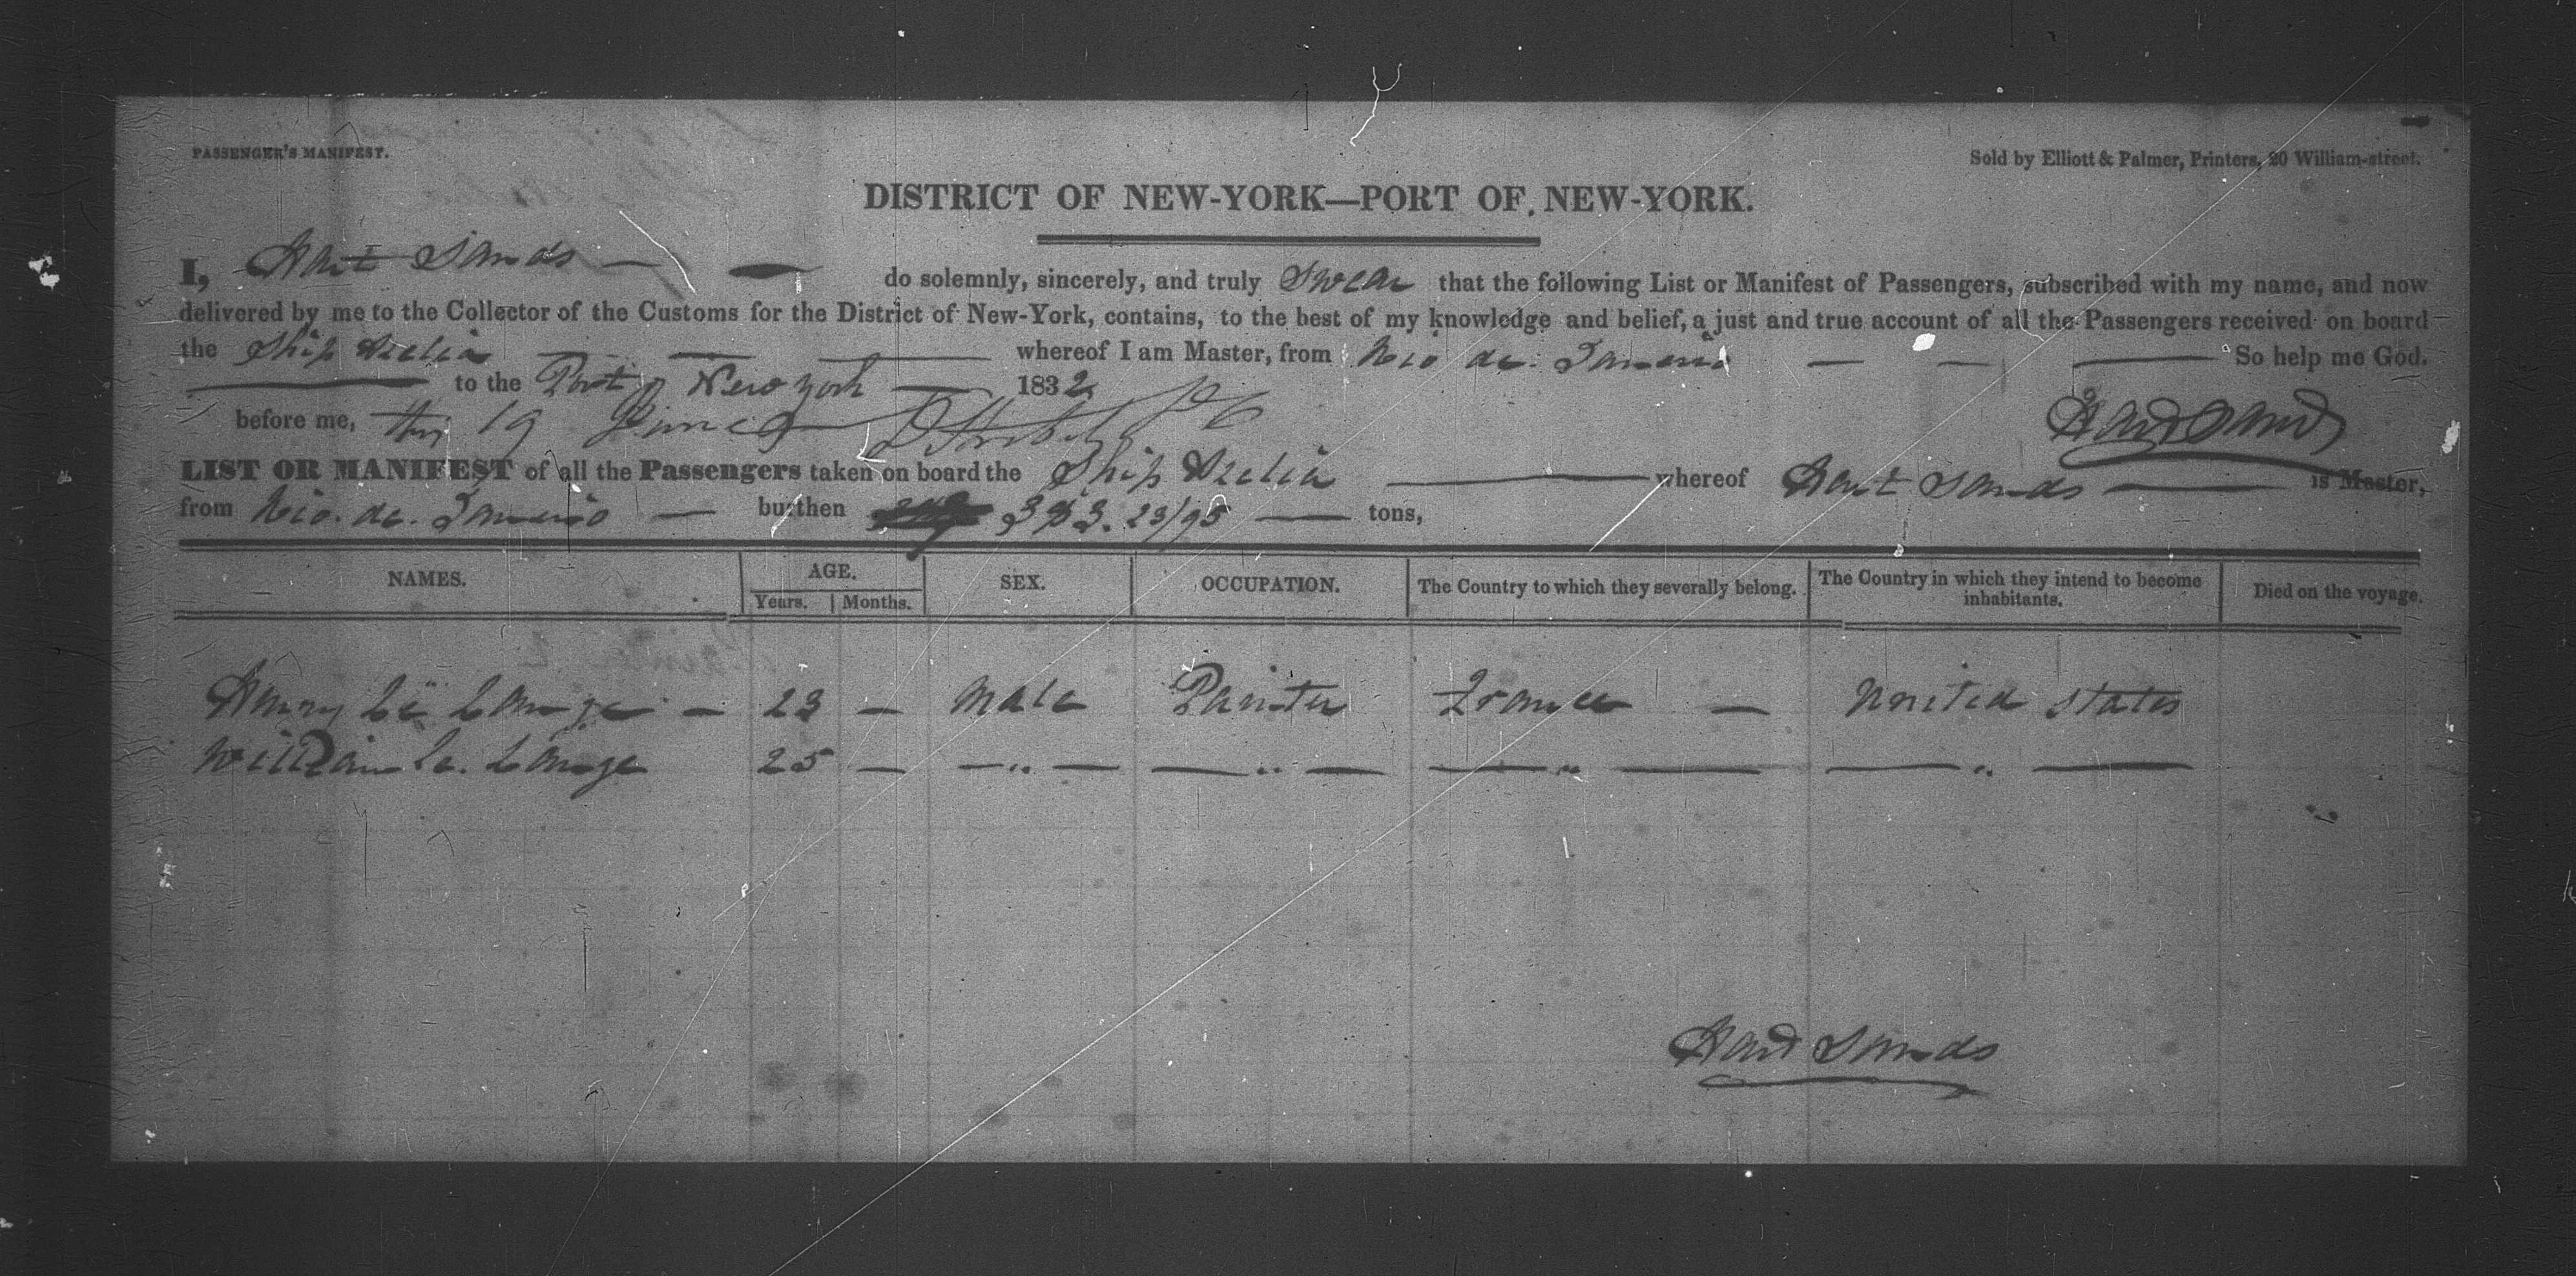 PASSENGER'S MANIFEST.
Sold by Elliott & Palmer, Printers, 20 William-street.
DISTRICT OF NEW-YORK—PORT OF NEW-YORK.
I, Hart Sands — — do solemnly, sincerely, and truly Swear that the following List or Manifest of Passengers, subscribed with my name, and now
delivered by me to the Collector of the Customs for the District of New-York, contains, to the best of my knowledge and belief, a just and true account of all the Passengers received on board
the Ship — — — whereof I am Master, from Rio de. Janeiro — — — So help me God.
— to the Port of New york — 1832
before me, this 19 June
Hart Sands
LIST OR MANIFEST of all the Passengers taken on board the Ship — whereof Hart Sands — is Master,
from Rio. de. Janeiro — burthen 383. 23/95 — tons,
NAMES. AGE. SEX. OCCUPATION. The Country to which they severally belong. The Country in which they intend to become inhabitants. Died on the voyage.
Years. Months.
Henry Le Lange — 23 — Male Painter France — United States
William Le. Lange 25 — — " — — " — — " — — " —
Hart Sands